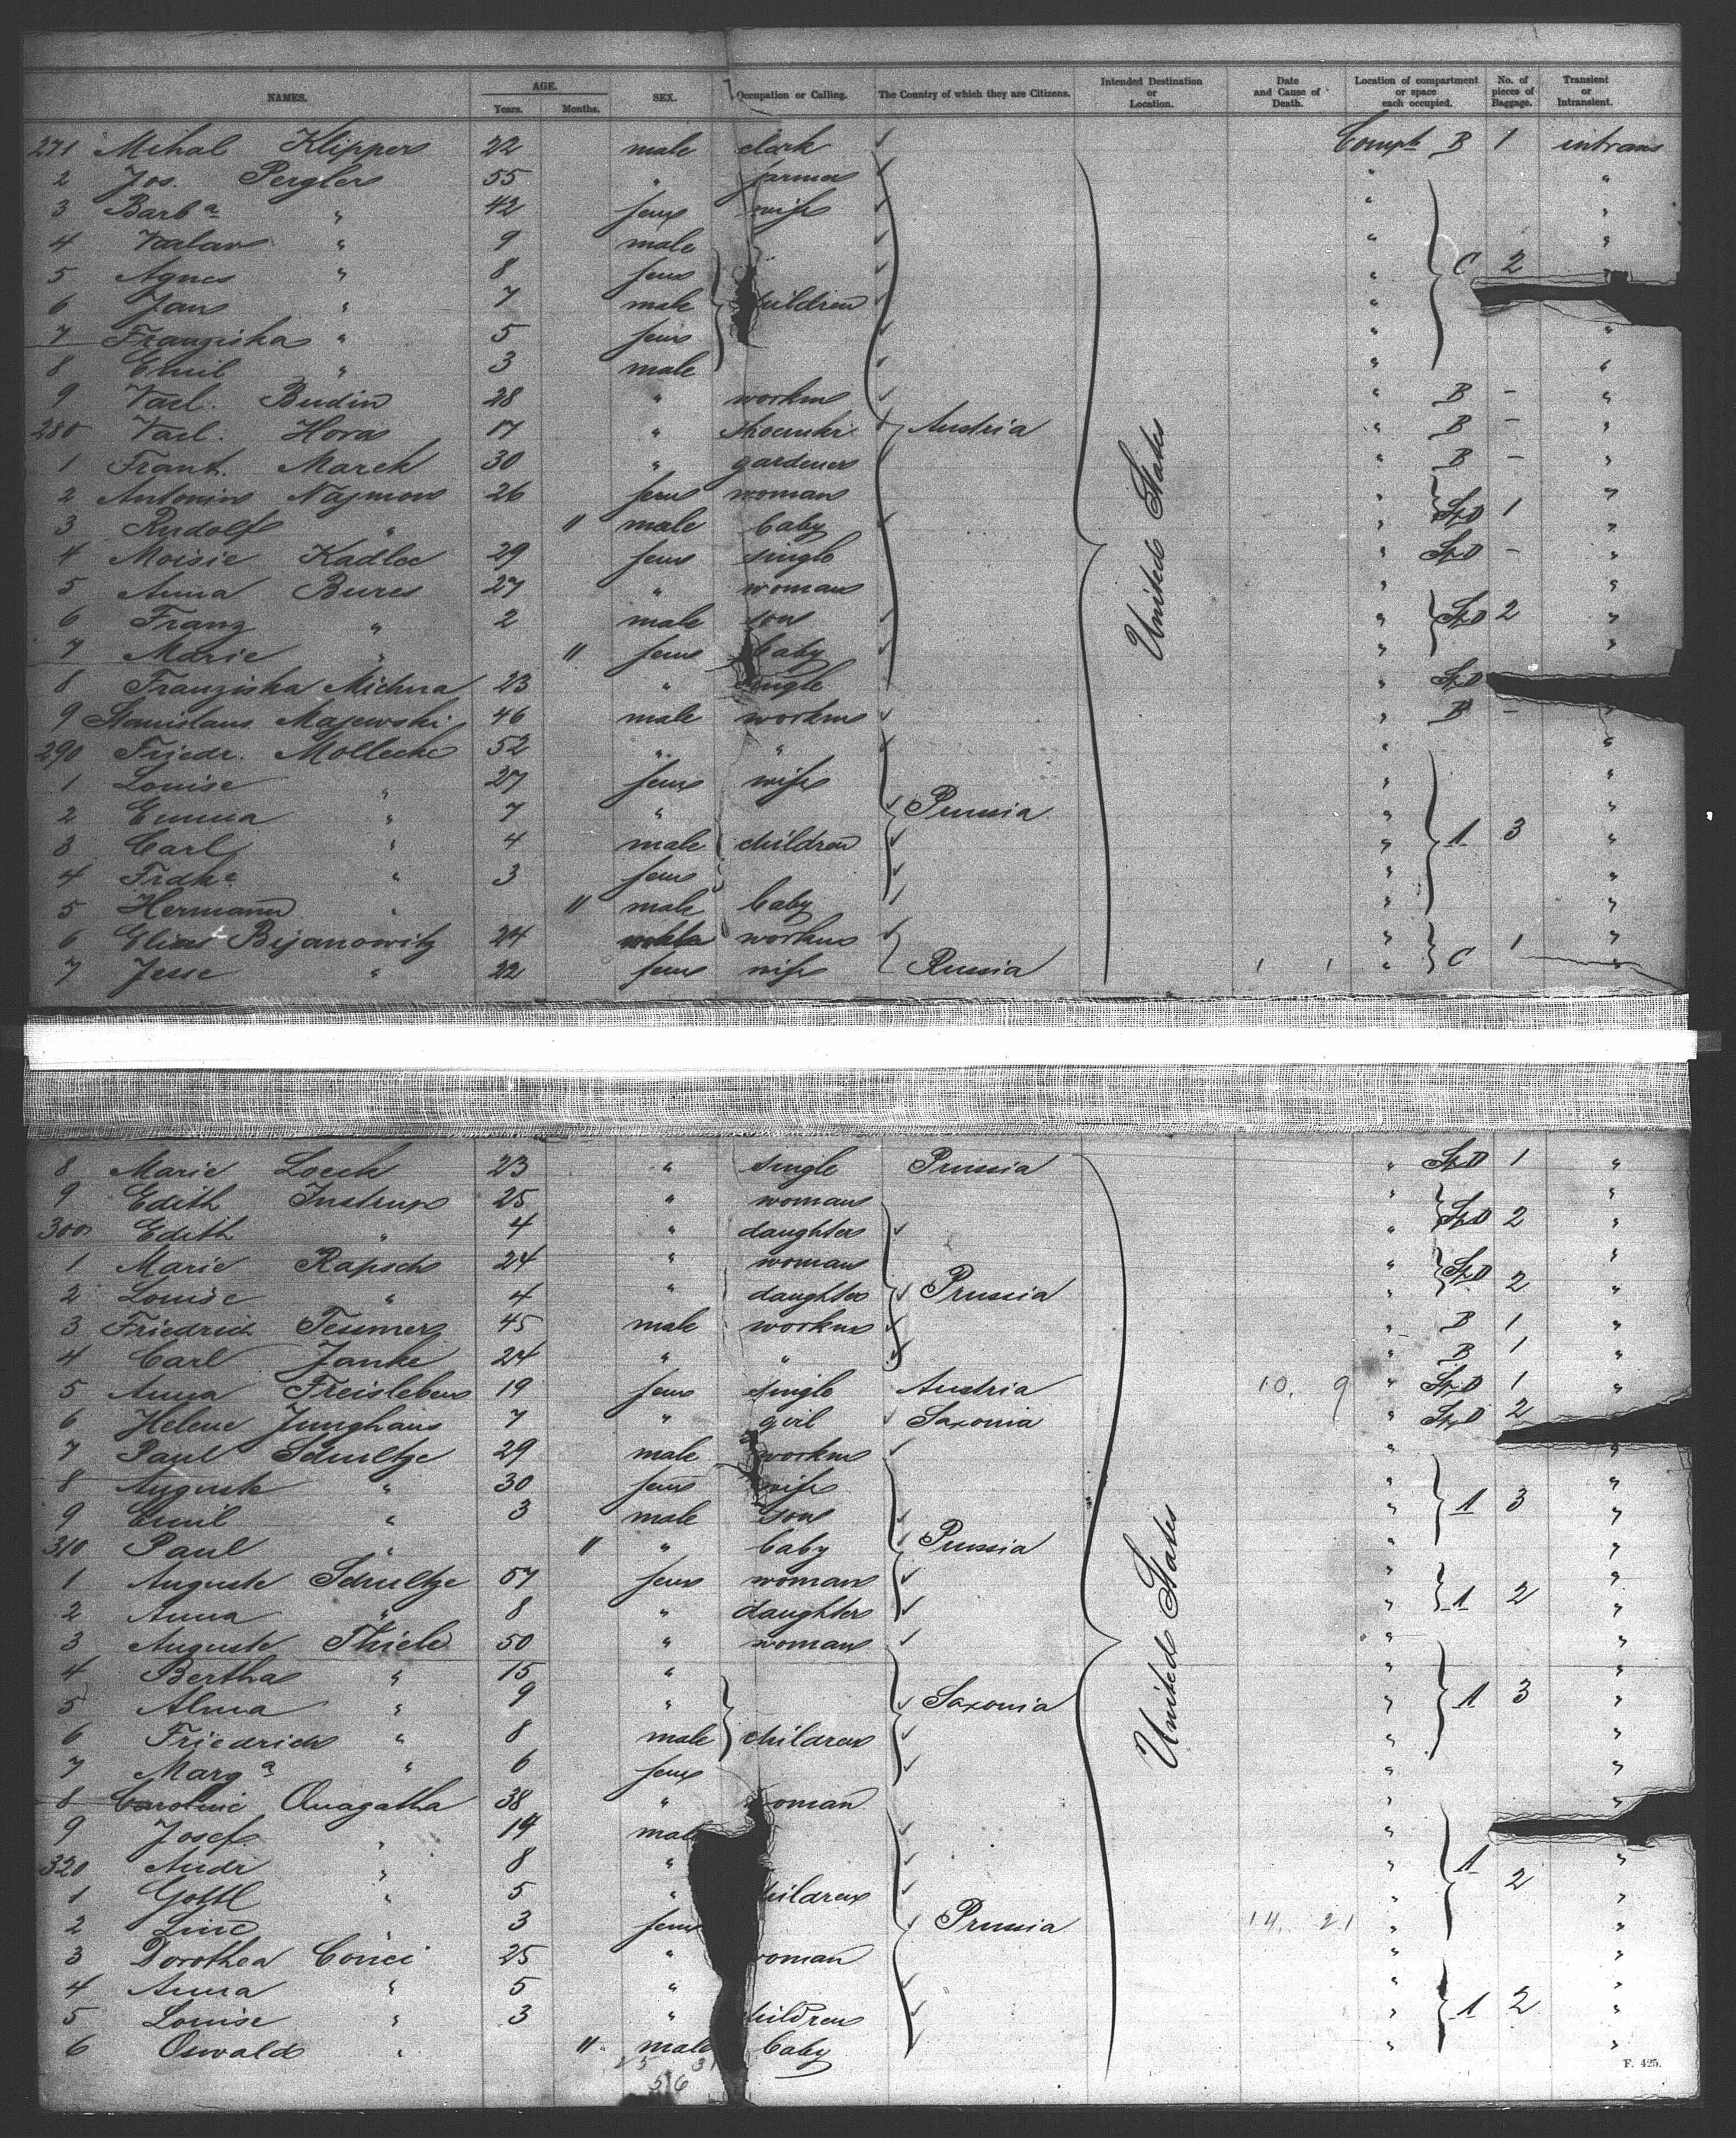 NAMES. AGE. Years. Months. SEX. Occupation or Calling. The Country of which they are Citizens. Intended Destination or Location. Date and Cause of Death. Location of compartment or space each occupied. No. of pieces of Baggage. Transient or Intransient.
271 Mihal Klipper 22 male clerk Compt B 1 intrans
2 Jos. Pergler 55 " farmer " "
3 Barbª " 42 fem wife " "
4 " 9 male " "
5 Agnes " 8 fem " C 2 "
6 Jan " 7 male children "
7 Franziska " 5 fem " "
8 Emil " 3 male " "
9 Vacl. Budin 28 " workm " B – "
280 Vacl. Hora 17 " Austria " B – "
1 Frant. Marek 30 " gardener " B – "
2 Antonin Najmon 26 fem woman " "
3 Rudolf " 11 male baby StD 1 "
4 Kadlec 29 fem single " StD – "
5 Anna Bures 27 " woman " "
6 Franz " 2 male son " StD 2 "
7 Marie " 11 fem baby " "
8 Franziska Michna 23 " single " StD
9 Stanislaus Majewski 46 male workm " B – "
290 Friedr. Mollecke 52 " " " "
1 Louise " 27 fem wife " "
2 Emma " 7 " Prussia " "
3 Carl " 4 male children " 1 3 "
4 Frdke " 3 fem " "
5 Hermann " 11 male baby " "
6 Elias Bijanowitz 24 male workm " 1 "
7 Jesse " 22 fem wife Russia " C "
United States
8 Marie Loeck 23 " single Prussia " StD 1 "
9 Edith Instrup 25 " woman " "
300 Edith " 4 " daughter " StD 2 "
1 Marie Rapsch 24 " woman " StD "
2 Louise " 4 " daughter Prussia " 2 "
3 Friedrich Tessmer 45 male workm " B 1 "
4 Carl Janke 24 " " " B 1 "
5 Anna Freisleben 19 fem single Austria 10. 9 " StD 1 "
6 Helene Junghans 7 " girl Saxonia " StD 2
7 Paul Schultze 29 male workm " "
8 Auguste " 30 fem wife " "
9 Emil " 3 male son " 1 3 "
310 Paul " 11 " baby Prussia " "
1 Auguste Schultze 57 fem woman " "
2 Anna " 8 " daughter " 1 2 "
3 Auguste Thiele 50 " woman " "
4 Bertha " 15 " " "
5 Alma " 9 " Saxonia " 1 3 "
6 Friedrich " 8 male children " "
7 Margª " 6 fem " "
8 Caroline Quagatha 38 " woman " "
9 Josef " 19 male "
320 Andr " 8 " " 1 "
1 Gottl " 5 " children " 2 "
2 Line " 3 fem Prussia 14. 21 " "
3 Dorothea Conci 25 " woman " "
4 Anna " 5 " " "
5 Louise " 3 " children " 1 2 "
6 Oswald " 11 male baby " "
United States
25 31
56
F. 425.